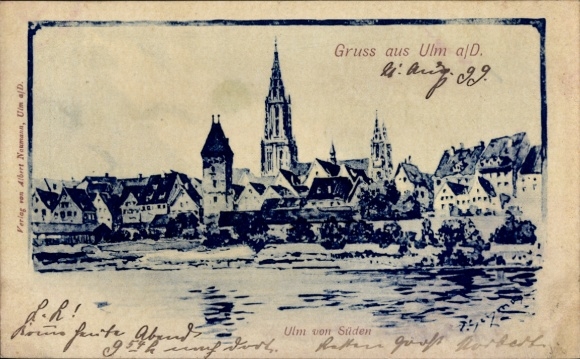 Gruss aus Ulm a/D.
21. Aug. 99
Verlag von Albert Naumann, Ulm a/D.
Ulm von Süden
L. K.!
Komme heute Abend
nach dort.
Robert.